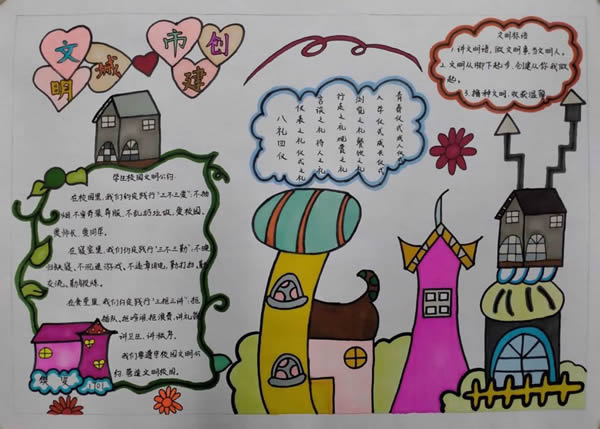 创建
文明城市
文明标语
1.讲文明语,做文明事,当文明人。
2.文明从脚下起步,创建从你我做
起。
3.播种文明,收获温馨
八礼四仪
仪表之礼 仪式之礼
言谈之礼 待人之礼
行走之礼 观赏之礼
游览之礼 餐饮之礼
入学仪式 成长仪式
青春仪式 成人仪式
学生校园文明公约
在校园里,我们约定践行"三不三爱":不抽
烟、不穿奇装异服、不乱扔垃圾、爱校园、
爱师长、爱同学。
在寝室里,我们约定践行"三不三勤":不晚
归缺寝、不沉迷游戏、不违章用电、勤打扫、勤
交流、勤锻炼。
在食堂里,我们约定践行"三拒三讲":拒
插队、拒喧哗、拒浪费、讲礼貌
讲卫生、讲秩序。
我们要遵守校园文明公
约,营造文明校园。